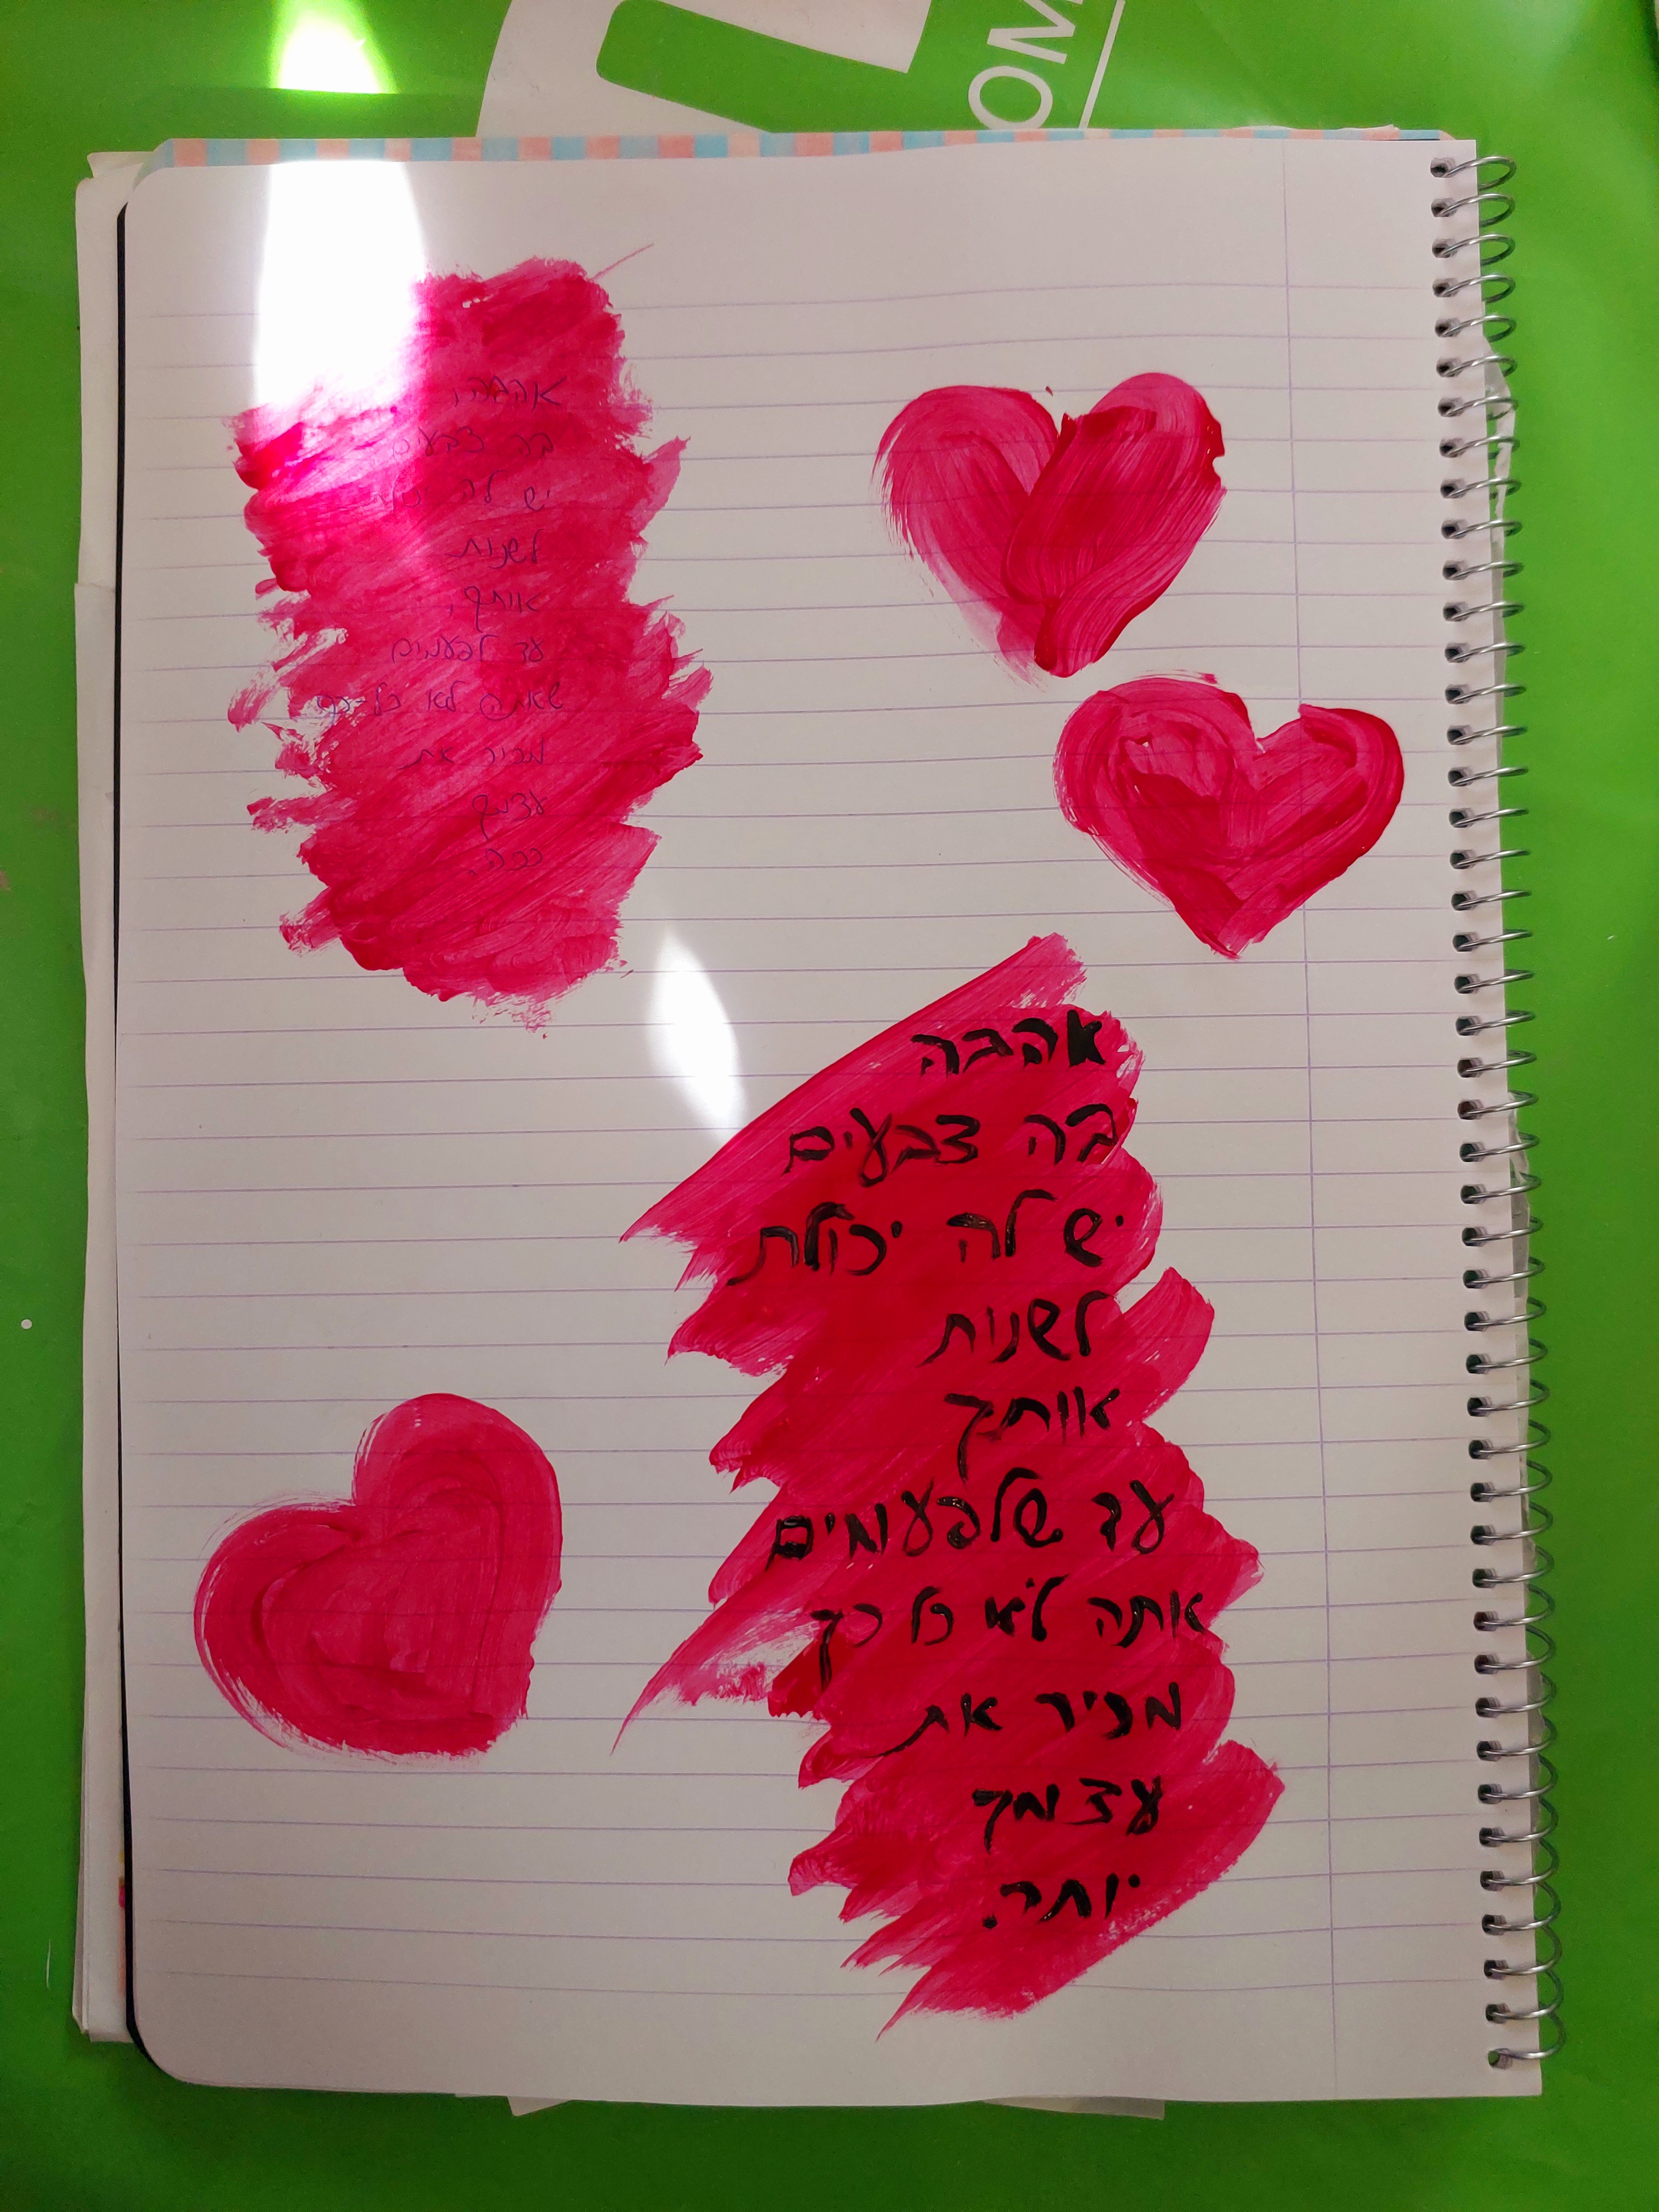 OM
אהבה,
בה צבעים
יש לה יכולת
לשנות
אותך,
עד לפעמים
שאתה לא כל כך
מכיר את
עצמך
ככה.
אהבה
בה צבעים
יש לה יכולת
לשנות
אותך
עד שלפעמים
אתה לא כל כך
מכיר את
עצמך
יותר.